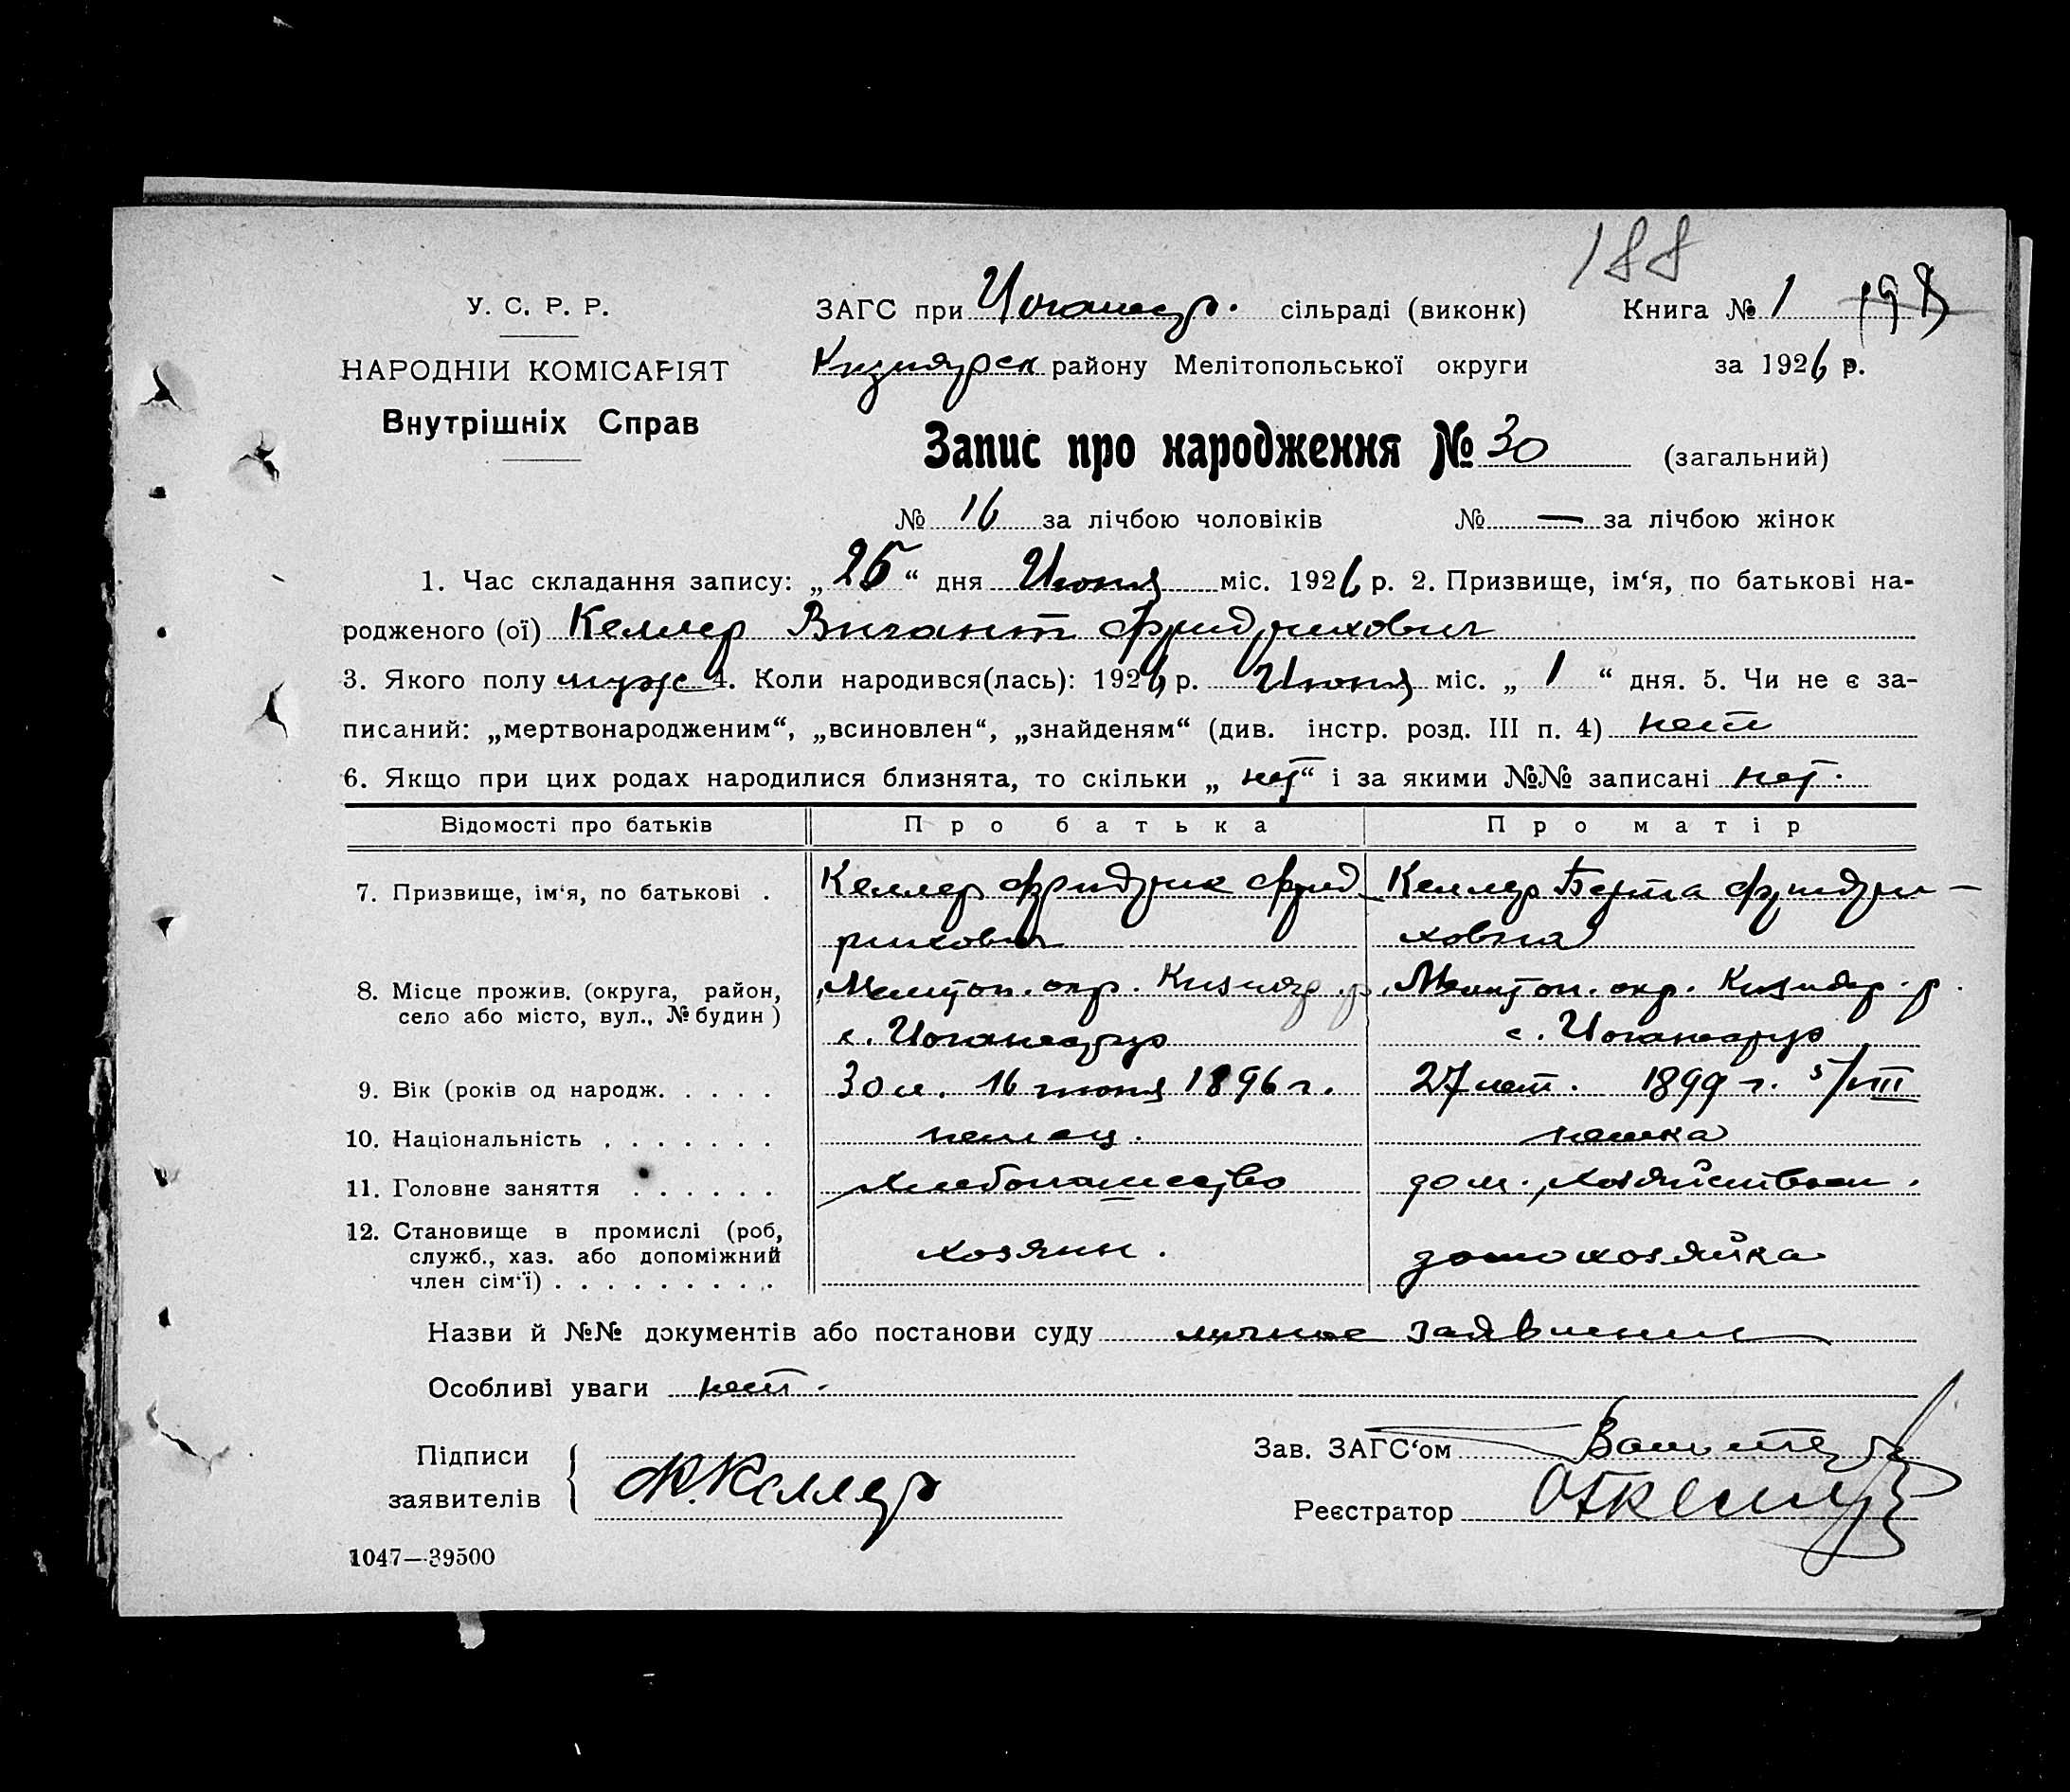 188
У. С. Р. Р. ЗАГС при Иоганеср. сільраді (виконк) Книга № 1 198
НАРОДНІИ КОМІСАРІЯТ Кизиярск району Мелітопольської округи за 1926 р.
Внутрішніх Справ
Запис про народження № 30 (загальний)
№ 16 за лічбою чоловіків № — за лічбою жінок
1. Час складання запису: „ 25 “ дня Июня міс. 1926 р. 2. Призвище, ім‘я, по батькові на-
родженого (ої) Келлер Вигант Фридрихович
3. Якого полу муж 4. Коли народився(лась): 1926 р. Июня міс. „ 1 “ дня. 5. Чи не є за-
писаний: „мертвонародженим“, „всиновлен“, „знайденям“ (див. інстр. розд. III п. 4) нет
6. Якщо при цих родах народилися близнята, то скільки „ нет “ і за якими №№ записані нет.
Відомості про батьків Про батька Про матір
7. Призвище, ім‘я, по батькові . Келлер Фридрих Фрид- Келлер Берта Фридри-
рихович ховна
8. Місце прожив. (округа, район, Мелитоп. окр. Кизияр. р. Мелитоп. окр. Кизияр. р.
село або місто, вул., № будин) с. Иоганесруэ с. Иоганесруэ
9. Вік (років од народж. . . . . 30 л. 16 июня 1896 г. 27 лет. 1899 г. 5/VIII
10. Національність . . . . . . . немец. немка
11. Головне заняття . . . . . . Хлебопашество дом. хозяйством.
12. Становище в промислі (роб, хозяин. домохозяйка
служб., хаз. або допоміжний
член сім‘ї) . . . . . . . . . .
Назви й №№ документів або постанови суду личное заявление
Особливі уваги нет.
Підписи Зав. ЗАГС‘ом
заявителів Ф. Келлер Реєстратор
1047—39500